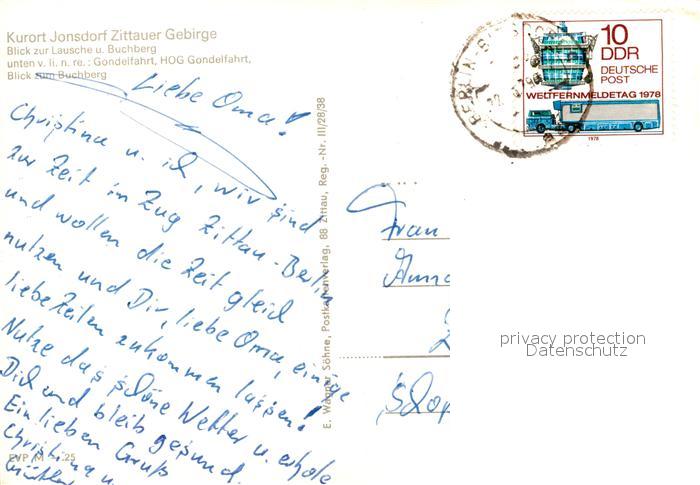 Kurort Jonsdorf Zittauer Gebirge
Blick zur Lausche u. Buchberg
unten v. li. n. re.: Gondelfahrt, HOG Gondelfahrt,
Blick zum Buchberg
Liebe Oma!
Christina u. ich, wir sind
zur Zeit im Zug Zittau-Berlin
und wollen die Zeit gleich
nutzen und Dir, liebe Oma, einige
liebe Zeilen zukommen lassen!
Nutze das schöne Wetter u. erhole
Dich und bleib gesund.
Ein lieben Gruß
Christina u.
EVP M -,25
E. Wagner Söhne, Postkartenverlag, 88 Zittau, Reg.-Nr. III/28/38
10
DDR
DEUTSCHE
POST
WELTFERNMELDETAG 1978
1978
BERLIN
Frau
privacy protection
Datenschutz